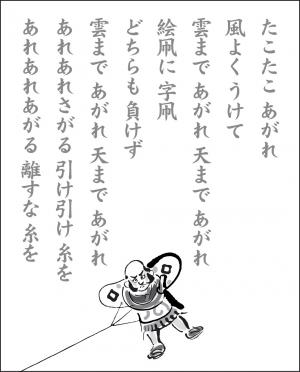 たこたこ あがれ
風よく うけて
雲まで あがれ 天まで あがれ
絵凧に 字凧
どちらも 負けず
雲まで あがれ 天まで あがれ
あれあれさがる 引け引け 糸を
あれあれあがる 離すな 糸を